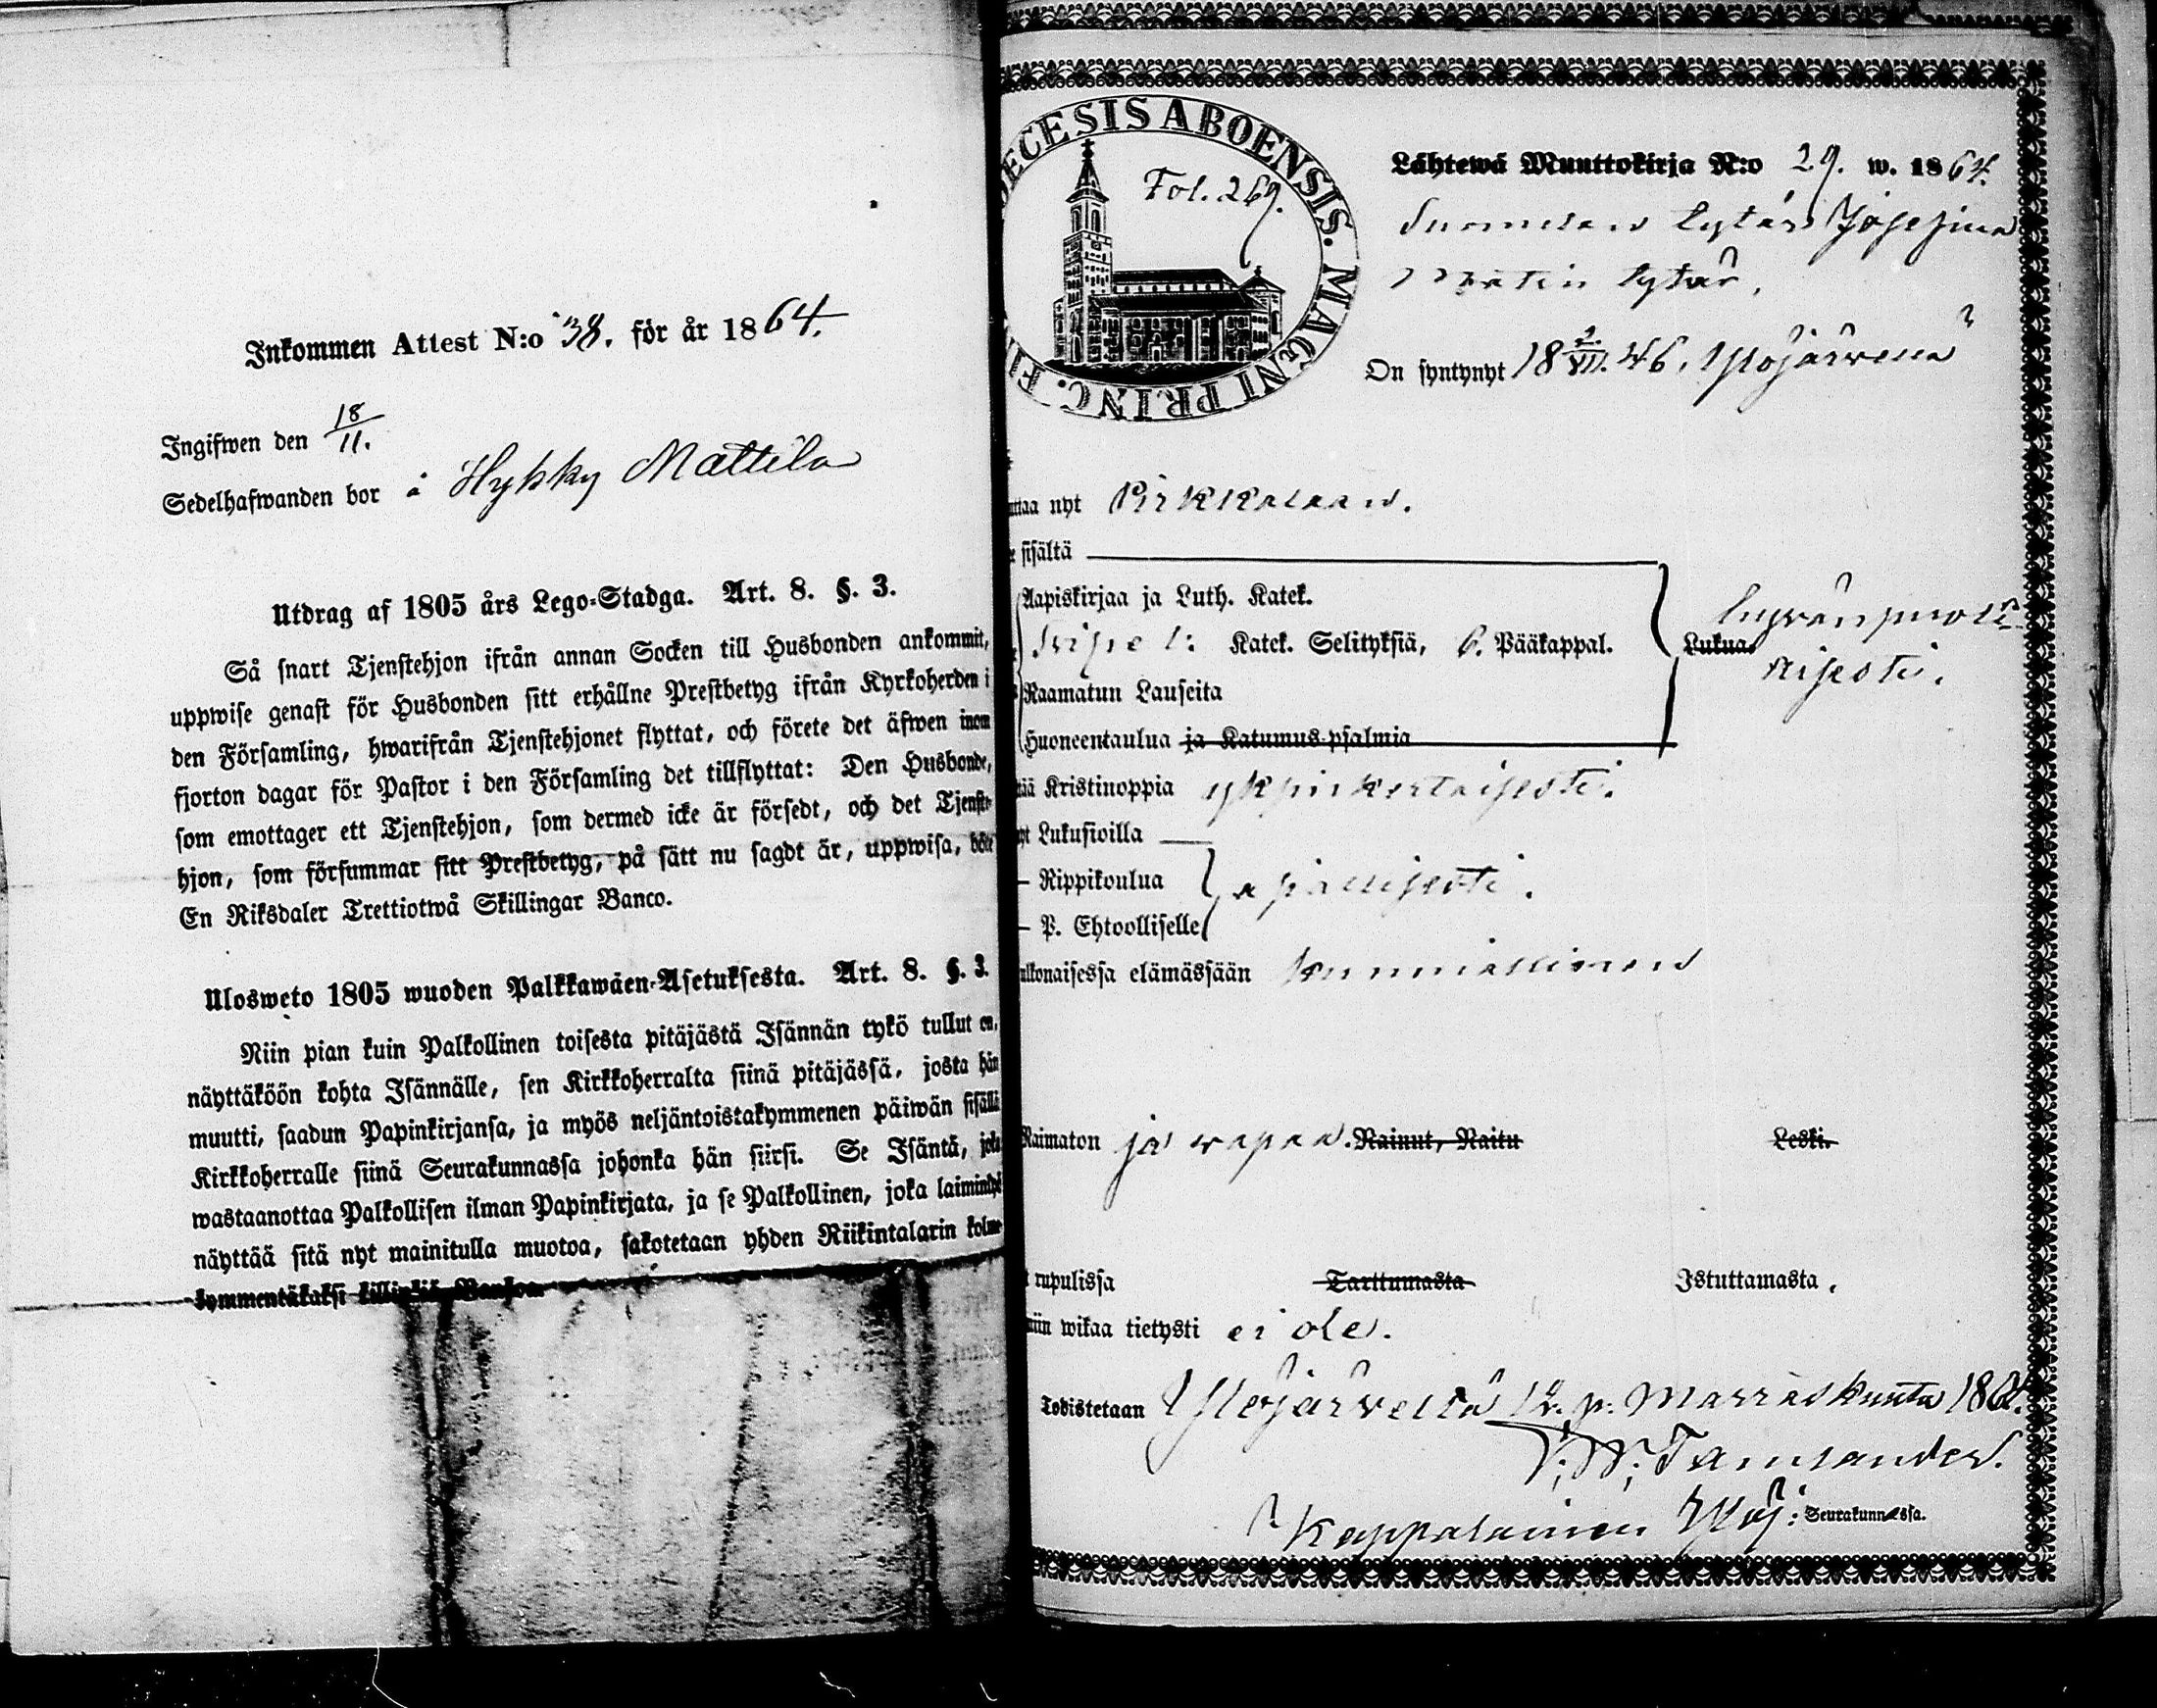 Inkommen Attest N:o 38. för år 1864.
Ingifwen den 18/11.
Sedelhafwanden bor å Hykky Mattila
Utdrag af 1805 års Lego-Stadga. Art. 8. §. 3.
Så snart Tjenstehjon ifrån annan Socken till Husbonden ankommit,
uppwise genast för Husbonden sitt erhållne Prestbetyg ifrån Kyrkoherden i
den Församling, hwarifrån Tjenstehjonet flyttat, och förete det äfwen inom
fjorton dagar för Pastor i den Församling det tillflyttat: Den Husbonde,
som emottager ett Tjenstehjon, som dermed icke är försedt, och det Tjenste-
hjon, som försummar sitt Prestbetyg, på sätt nu sagdt är, uppwisa, böte
En Riksdaler Trettiotwå Skillingar Banco.
Ulosweto 1805 wuoden Palkkawäen-Asetuksesta. Art. 8. §. 3.
Niin pian kuin Palkollinen toisesta pitäjästä Isännän tykö tullut on,
näyttäköön kohta Isännälle, sen Kirkkoherralta siinä pitäjässä, josta hän
muutti, saadun Papinkirjansa, ja myös neljäntoistakymmenen päiwän sisällä
Kirkkoherralle siinä Seurakunnassa johonka hän siirsi. Se Isäntä, joka
wastaanottaa Palkollisen ilman Papinkirjata, ja se Palkollinen, joka laiminlyö
näyttää sitä nyt mainitulla muotoa, sakotetaan yhden Riikintalarin kolme-
kymmentäkaksi killinkiä Bankoa
ECESIS ABOENSIS. MAGNI PRINC. FI
Fol. 269.
Lähtewä Muuttokirja N:o 29. w. 1864.
tytär Josefina
Matin tytär,
On syntynyt 18 2/VII. 46. Ylöjärvellä
uttaa nyt Pirkkalaan.
e sisältä
Aapiskirjaa ja Luth. Katek.
Katek. Selityksiä, 6. Pääkappal.
Lukua hyvänpuoli-
sisesti.
Raamatun Lauseita
Huoneentaulua ja Katumus-psalmia
tää Kristinoppia yksinkertaisesti.
yt Lukusioilla
— Rippikoulua
— P. Ehtoolliselle
ahkonaisessa elämässään kunniallinen
Naimaton ja wapaa. Nainut, Naitu Leski.
t rupulissa Tarttumasta Istuttamasta.
niin wikaa tietysti ei ole.
Todistetaan Ylöjärvellä 12. p. Marraskuuta 1864.
Kappalainen Ylöj: Seurakunnassa.